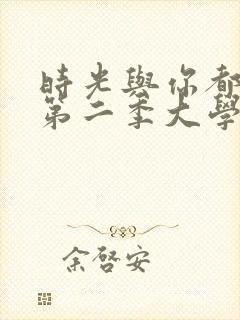 時光與你都
第二季大學
余啓安